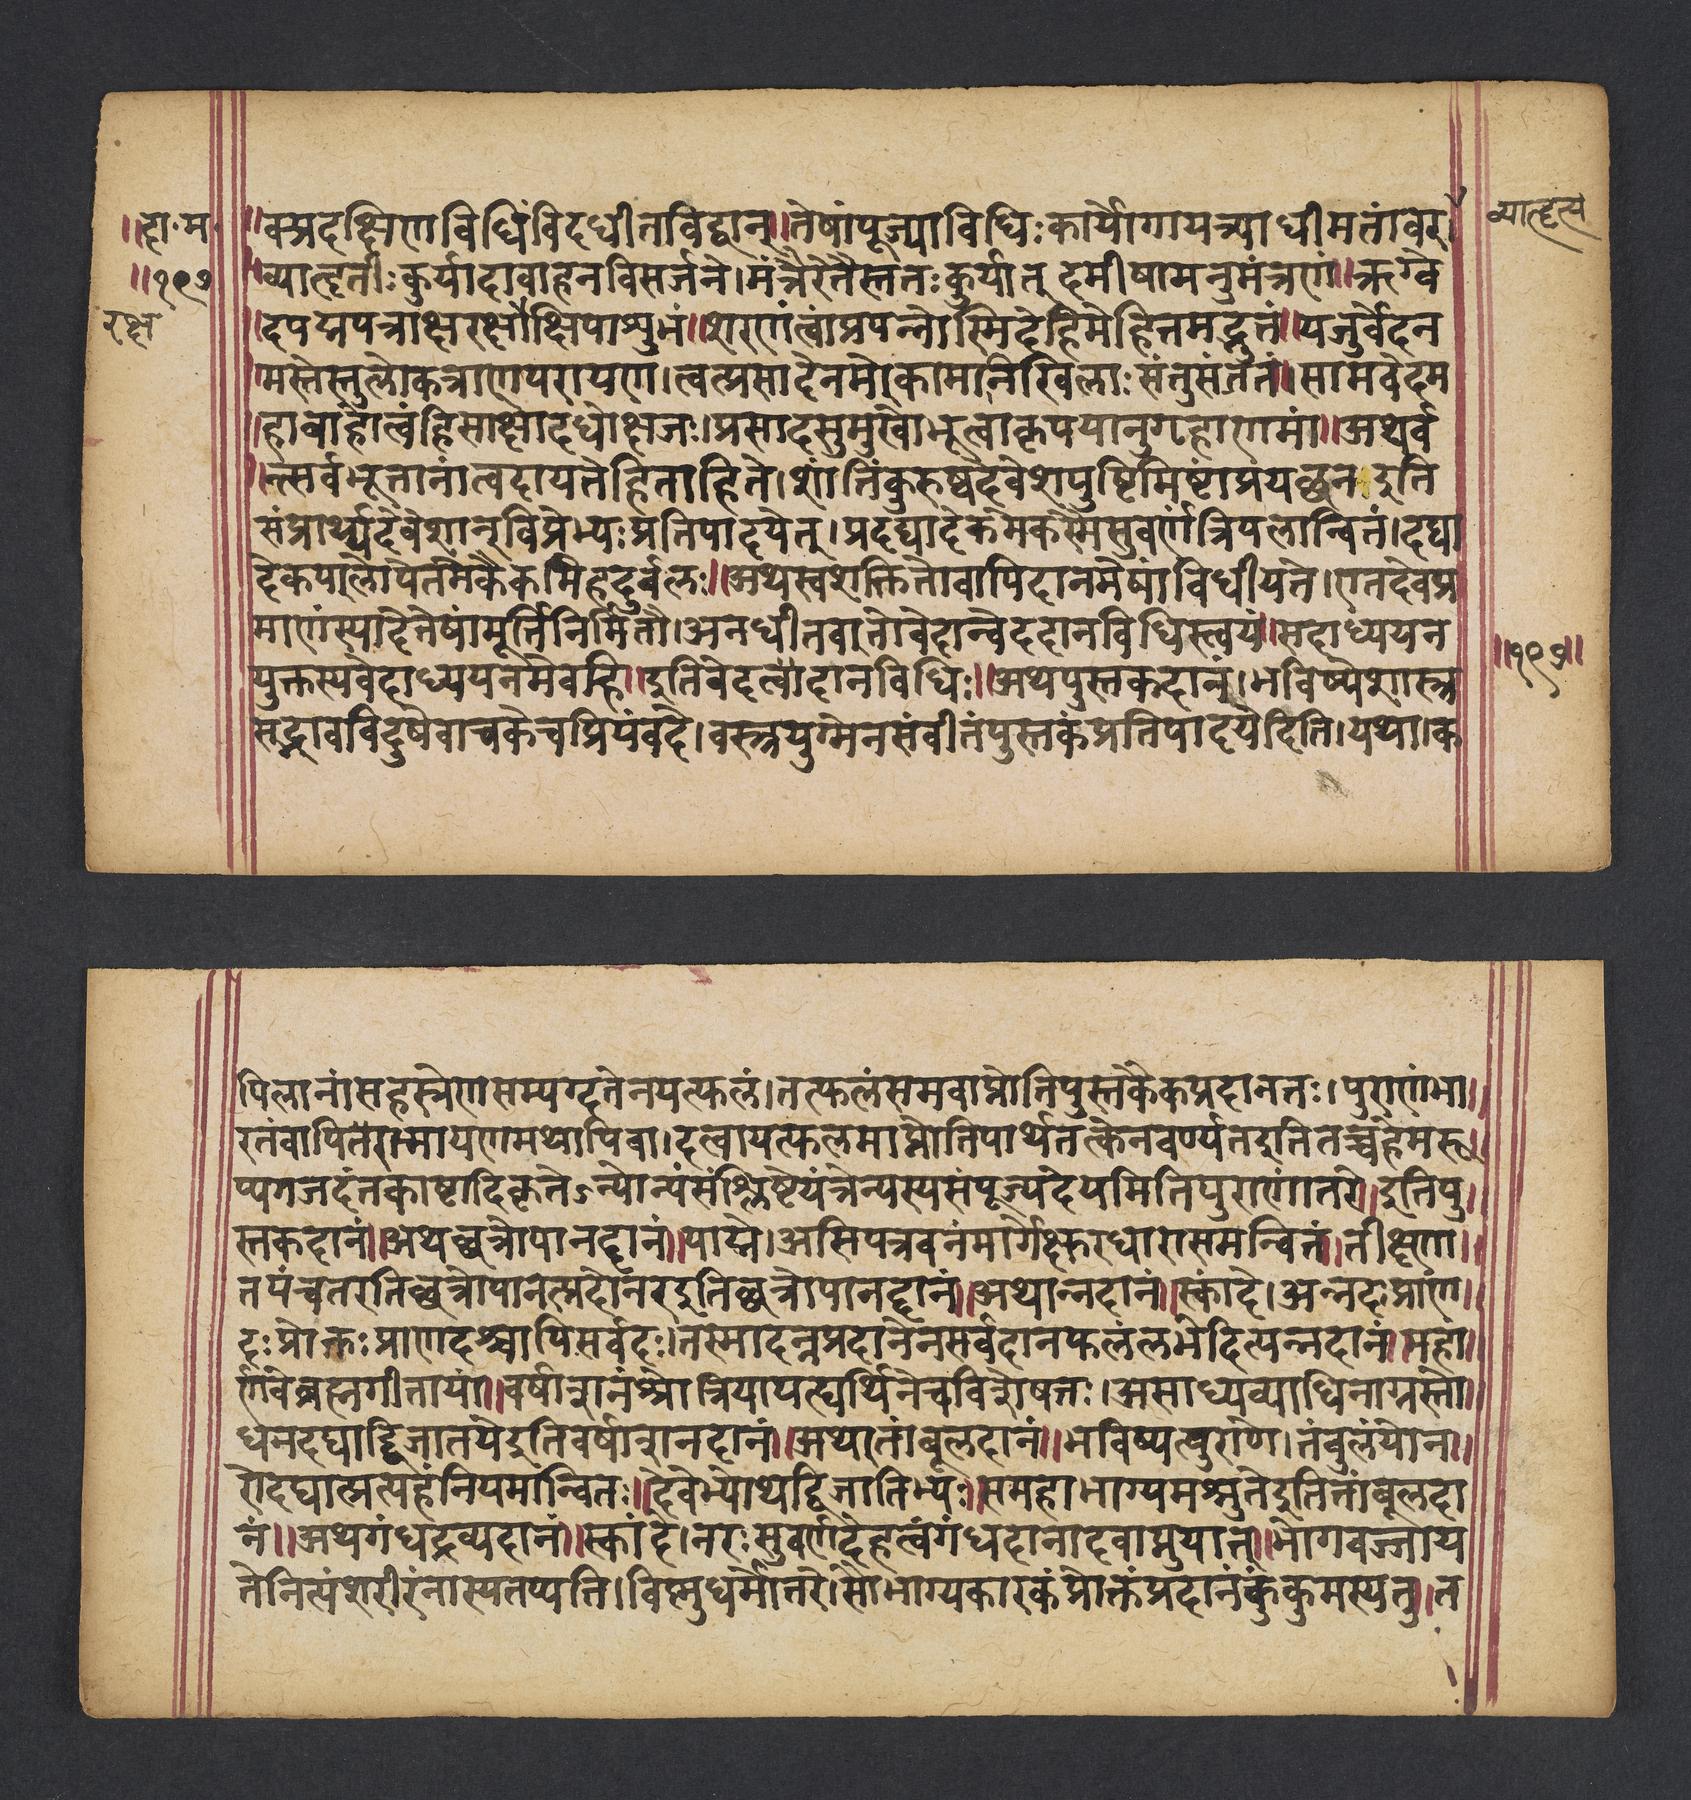 ॥दा॰म॰
॥१९७
रक्ष
व्याहृत्य
॥क्प्रदक्षिणविधिंविदधीतविद्वान्॥तेषांपूज्याविधिःकार्योगायत्र्याधीमतांवर।
॥व्याहृतीःकुर्यादावाहनविसर्जने।मंत्रैरेतैस्ततःकुर्यात् इमीषामनुमंत्रणं॥ऋग्वे
॥दपद्मपत्राक्षरक्षौक्षिपाशुभं॥शरणंत्वांप्रपन्नोस्मिदेहिमेहितमद्भुतं॥यजुर्वेदन
॥मस्तेस्तुलोकत्राणपरायण।त्वत्प्रसादेनमेकामानिखिलाःसंतुसंततं॥सामवेदम
॥हाबाहोत्वंहिसाक्षादधोक्षजः।प्रसादसुमुखोभूत्वाकृपयानुगृहाणमां॥अथर्व
॥न्सर्वभूतानांत्वदायत्तेहिताहिते।शांतिंकुरुष्वदेवेशपुष्टिमिष्टांप्रयछन इति
संप्रार्थ्यदेवेशान्विप्रेभ्यःप्रतिपादयेत्।प्रदद्यादेकमेकस्मैसुवर्णंत्रिपलान्वितं।दद्या
देकपलोपेतमेकैकमिहदुर्बलः॥अथस्वशक्तितोवापिदानमेषांविधीयते।एतदेवप्र
माणंस्यादेतेषांमूर्त्तिनिर्मितौ।अनधीतवातोवेदान्वेददानविधिस्त्वयं॥सहाध्ययन
युक्तस्यवेदाध्ययनमेवहि॥इतिवेदत्वादानविधिः॥अथपुस्तकदानं।भविष्येशास्त्र
सद्भावविदुषेवाचकेचप्रियंवदे।वस्त्रयुग्मेनसंवीतंपुस्तकंप्रतिपादयेदिति।यथा।क
॥१९७॥
पिलानांसहस्रेणसम्यग्दत्तेनयत्फलं।तत्फलंसमवाप्नोतिपुस्तकैकप्रदानतः।पुराणंभा॥
रतंवापितेरामायणमथापिवा।दत्वायत्फलमाप्नोतिपार्थतत्केनवर्ण्यतइतितच्चहेमरू॥
प्यगजदंतकाष्टादिकृतेऽन्योन्यंसंश्लिष्टेयंत्रेन्यस्यसंपूज्यदेयमितिपुराणांतरे॥इतिपु॥
स्तकदानं॥अथछत्रोपानद्दानं॥पाद्मे।असिपत्रवनंमार्गेक्षुरधारासमन्वितं॥तीक्ष्णा॥
तपंचतरतिछत्रोपानत्प्रदोनरइतिछत्रोपानद्दानं॥अथान्नदानं॥स्कांदे।अन्नदःप्राण॥
दःप्रोक्तःप्राणदश्चापिसर्वदः।तस्मादन्नप्रदानेनसर्वदानफलंलभेदित्यन्नदानं॥महा॥
र्णवेब्रह्मगीतायां॥वर्षान्नानंश्रोत्रियायापत्घर्थिनेचविशेषतः।असाध्यव्याधिनाग्रस्तो॥
धनदद्याद्द्विजातयेइतिवर्षान्नानदानं॥अथातांबूलदानं॥भविष्यत्पुराणे।तंबुलंयोन॥
रोदद्यात्प्रत्यहंनियमान्वितः॥देवेभ्योथद्विजातिभ्यः॥समहाभाग्यमश्नुतेइतितांबूलदा
नं॥अथगंधद्रव्यदानं॥स्कांदे।नरःसुवर्णदेहत्वंगंधदानादवाप्नुयात्॥भोगवज्जाय
तेनित्यंशरीरंनास्यतप्यति।विष्णुधर्मोत्तरे।सौभाग्यकारकंप्रोक्तंप्रदानंकुंकुमस्यतु॥त